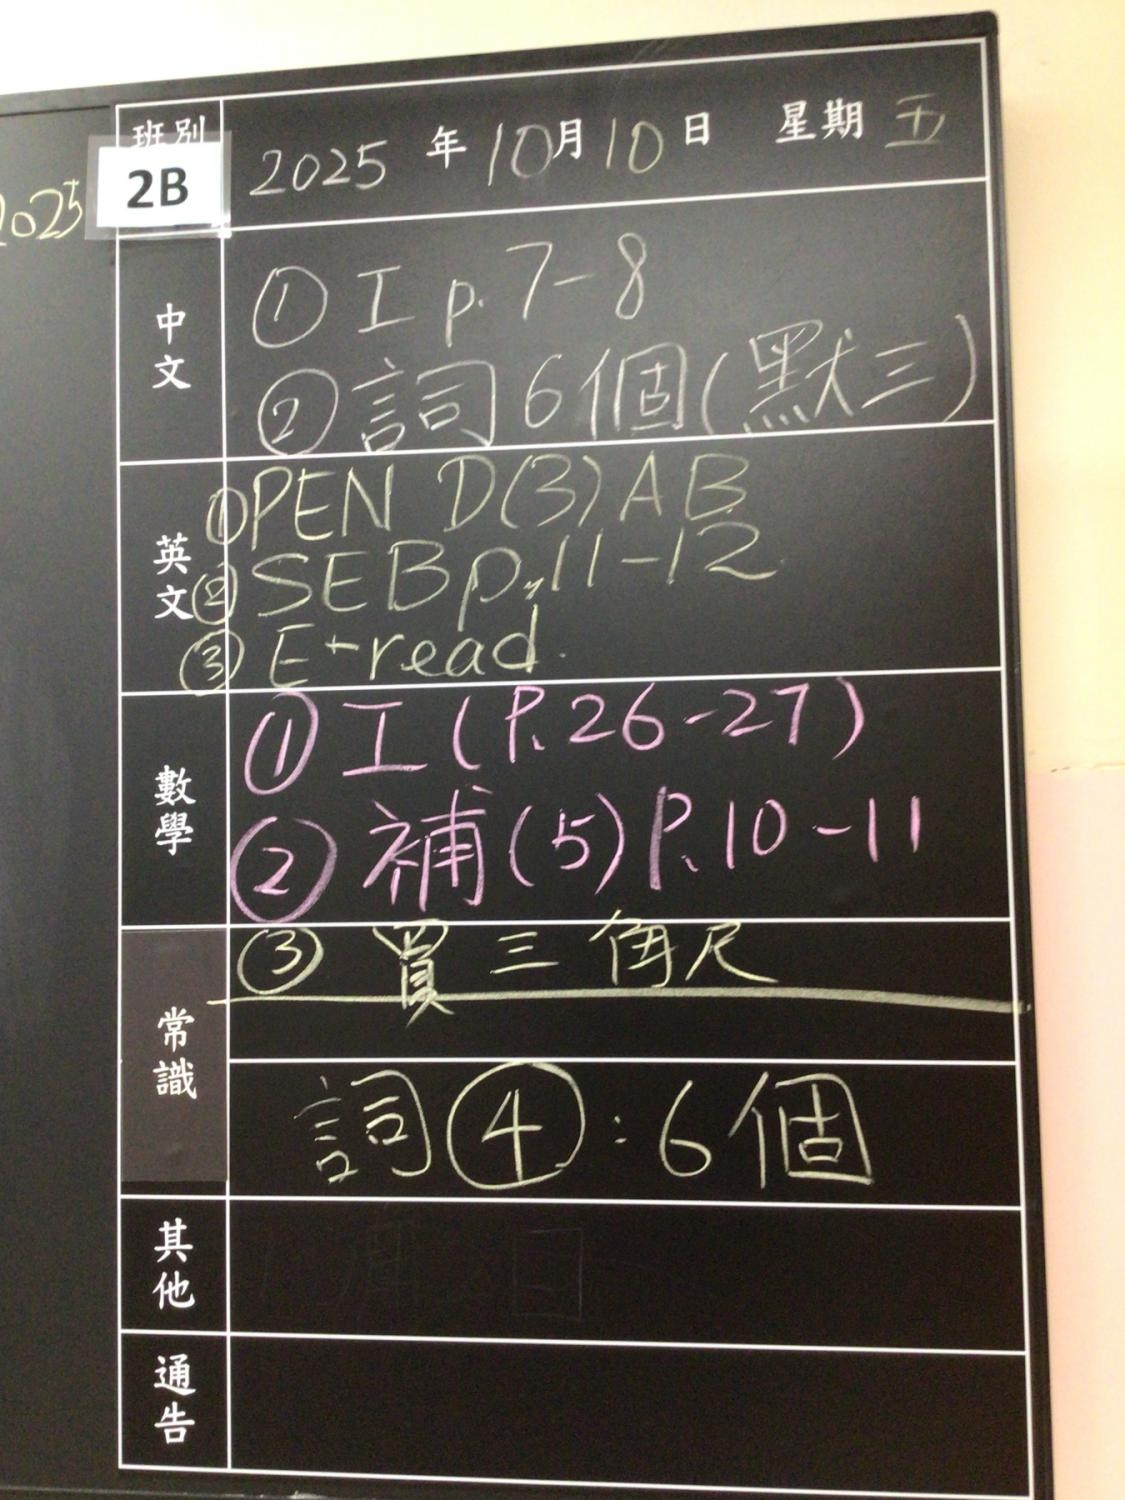 班別
2B
2025 年 10 月 10 日 星期 五
2025
中文
① 工 p. 7-8
② 詞 6個 (默三)
英文
① PEN D(3) A B
② SEB p. 11-12
③ E-read.
數學
① 工 (P. 26-27)
② 補 (5) P. 10-11
③ 買 三 角 尺
常識
詞 ④ : 6個
其他
通告